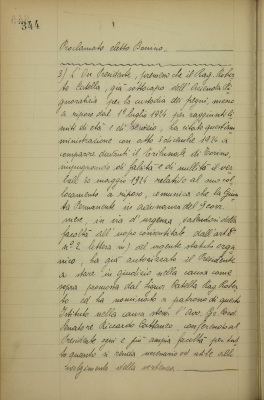 344
Proclamato eletto Bonino.
3) L'On. Presidente, premesso che il Rag. Rober
to Patella, già sottocapo dell'Azienda Pi
gnoratizia per la custodia dei pegni, messo
a riposo dal 1° luglio 1924 per raggiunti li
miti di età e di servizio, ha citato quest'am
ministrazione con atto 3 dicembre 1924 a
comparire davanti il Tribunale di Torino,
impugnando di falsità e di nullità il ver
bale 30 maggio 1924 relativo al suo col
locamento a riposo, comunica che la Giun
ta Permanente in adunanza del
in via d'urgenza, valendosi della
facoltà all'uopo consentitale dall'art.
n° 2 lettera del vigente statuto orga
nico, ha già autorizzato il Presidente
a stare in giudizio nella causa come
sopra promossa dal Signor Patella Rag. Rober
to ed ha nominato a patrono di questo
Istituto nella causa stessa l'avv. Gr. Cord.
Senatore Riccardo Cattaneo, conferendo al
Presidente ogni e più ampia facoltà per tut
to quanto si renda necessario ed utile allo
svolgimento della vertenza.